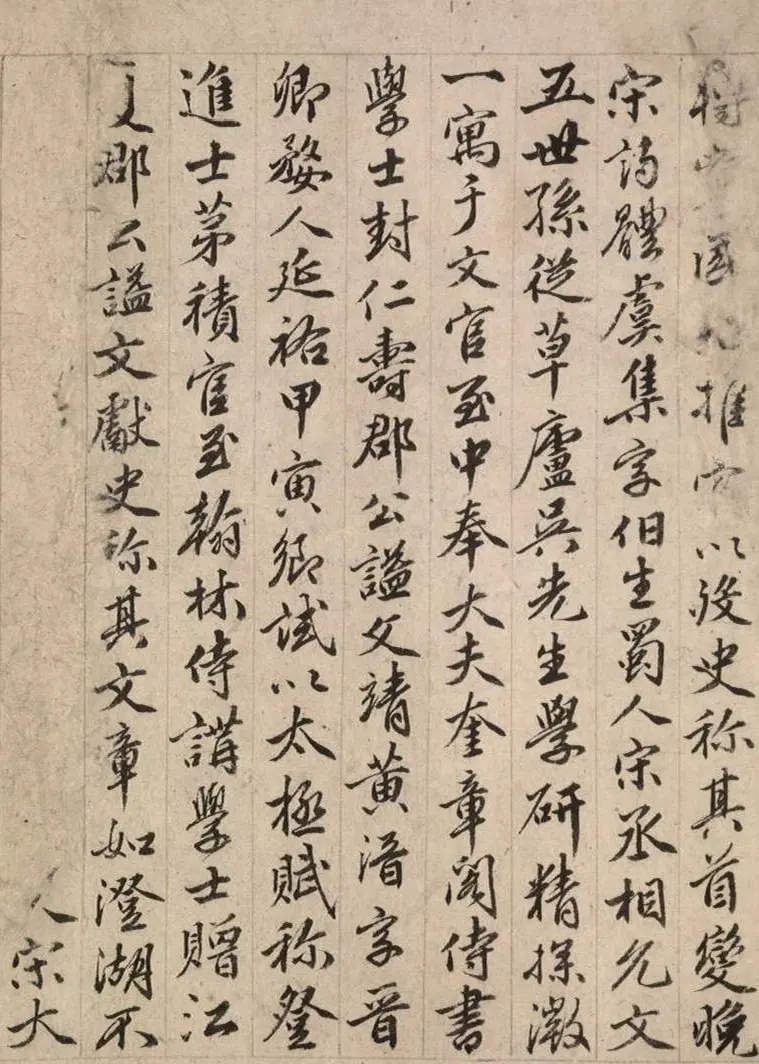 國推以後史称其首變晚
宋體虞集字伯生蜀人宋丞相允文
五世孫從草廬吳先生學研精探微
一寓于文官至中奉大夫奎章閣侍書
學士封仁壽郡公謚文靖黃溍字晉
卿婺人延祐甲寅鄉試以太極賦称登
進士苐積官至翰林侍講學士贈江
夏郡公謚文獻史称其文章如澄湖不
人宋大